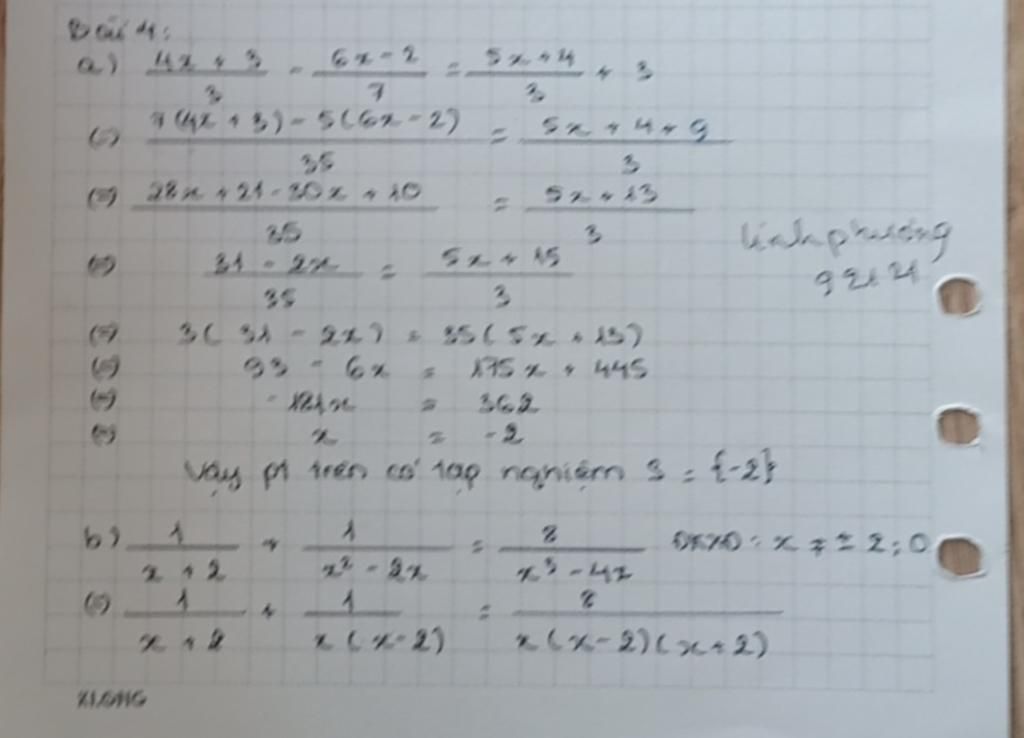 Bài 4:
a) \frac{4x + 3}{3} - \frac{6x - 2}{7} = \frac{5x + 4}{3} + 3
(=) \frac{7(4x + 3) - 5(6x - 2)}{35} = \frac{5x + 4 + 9}{3}
(=) \frac{28x + 21 - 30x + 10}{35} = \frac{5x + 13}{3}
linh phương
9214
(=) \frac{31 - 2x}{35} = \frac{5x + 15}{3}
(=) 3(31 - 2x) = 35(5x + 13)
(=) 93 - 6x = 175x + 445
(=) -181x = 362
(=) x = -2
Vậy pt trên có tập nghiệm S = {-2}
b) \frac{1}{x + 2} + \frac{1}{x² - 2x} = \frac{8}{x³ - 4x} ĐKXĐ: x ≠ ± 2; 0
(=) \frac{1}{x + 2} + \frac{1}{x(x - 2)} = \frac{8}{x(x - 2)(x + 2)}